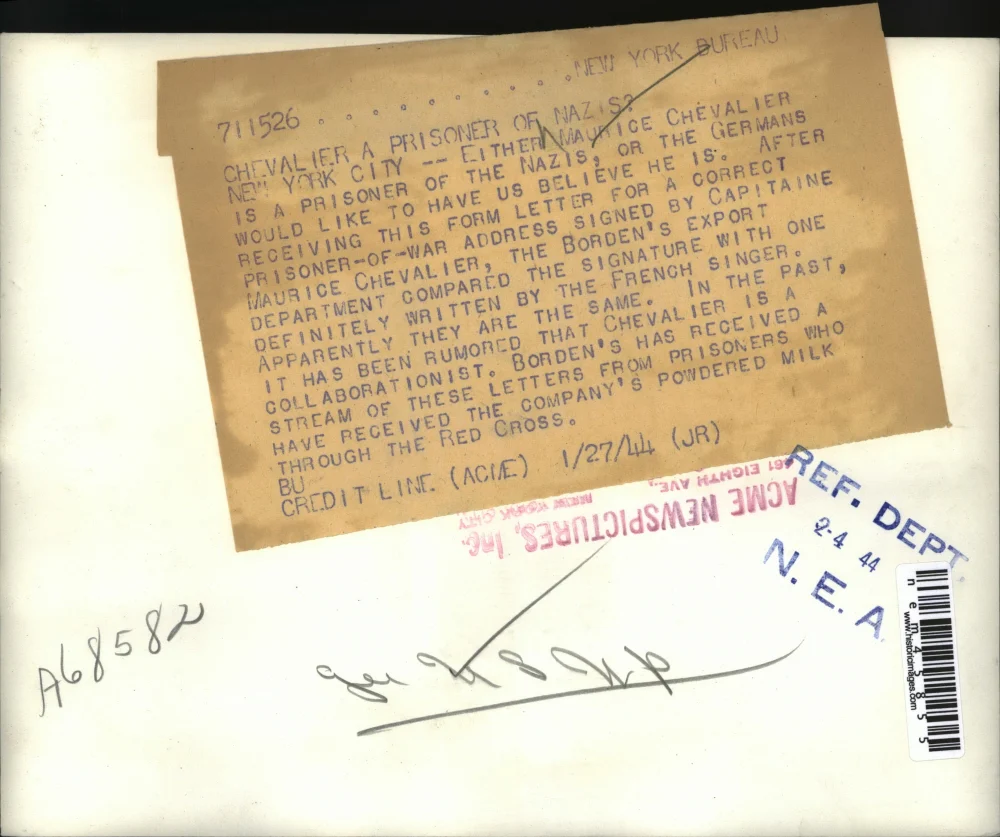 711526 . . . . . . . . . NEW YORK BUREAU
CHEVALIER A PRISONER OF NAZIS?
NEW YORK CITY -- EITHER MAURICE CHEVALIER
IS A PRISONER OF THE NAZIS, OR THE GERMANS
WOULD LIKE TO HAVE US BELIEVE HE IS. AFTER
RECEIVING THIS FORM LETTER FOR A CORRECT
PRISONER-OF-WAR ADDRESS SIGNED BY CAPITAINE
MAURICE CHEVALIER, THE BORDEN'S EXPORT
DEPARTMENT COMPARED THE SIGNATURE WITH ONE
DEFINITELY WRITTEN BY THE FRENCH SINGER.
APPARENTLY THEY ARE THE SAME. IN THE PAST,
IT HAS BEEN RUMORED THAT CHEVALIER IS A
COLLABORATIONIST. BORDEN'S HAS RECEIVED A
STREAM OF THESE LETTERS FROM PRISONERS WHO
HAVE RECEIVED THE COMPANY'S POWDERED MILK
THROUGH THE RED CROSS.
BU
CREDIT LINE (ACME) 1/27/44 (JR)
ACME NEWSPICTURES, Inc.
461 EIGHTH AVE.,
NEW YORK CITY
REF. DEPT.
2-4 44
N. E. A
A68582
nem45855
www.historicimages.com